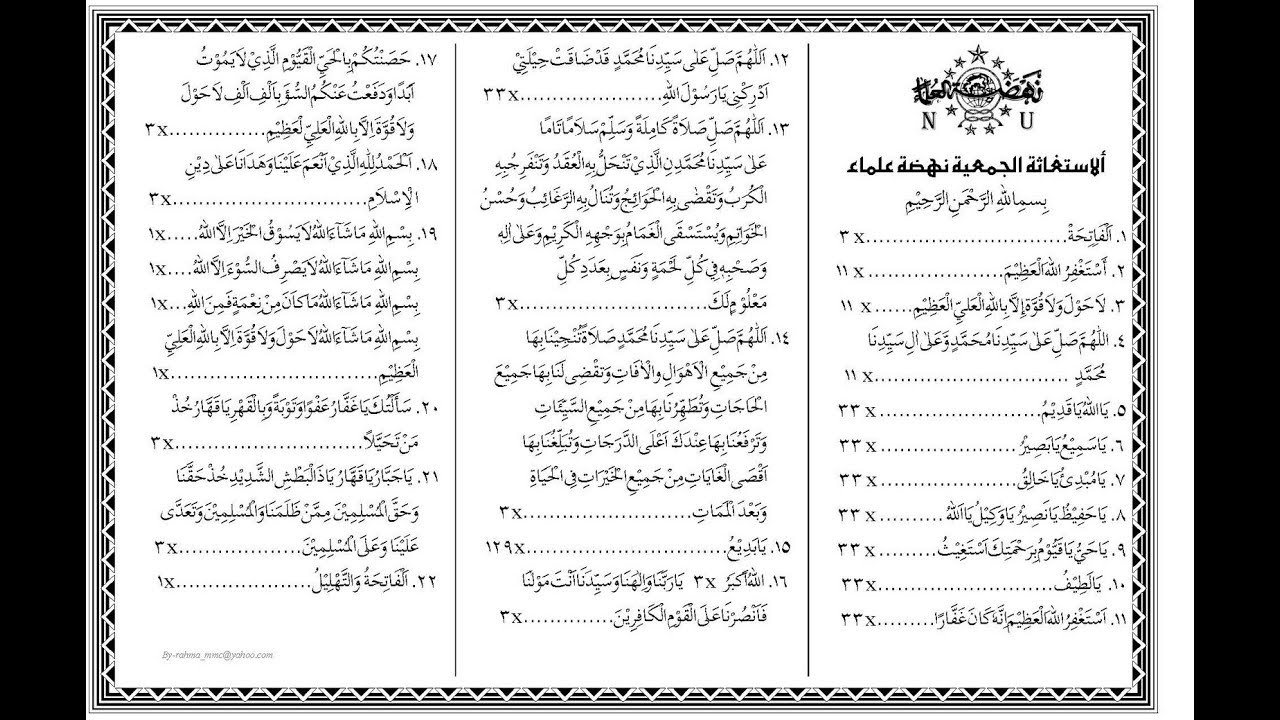 نهضة العلماء
N U
ألاستغاثة الجمعية نهضة علماء
بِسمِ اللهِ الرَّحْمَنِ الرَّحِيْمِ
١. اَلْفَاتِحَةْ..............................٣x
٢. أَسْتَغْفِرُ اللهَ الْعَظِيْمَ......................١١x
٣. لَاحَوْلَ وَلَاقُوَّةَ إِلَّا بِاللهِ الْعَلِيِّ الْعَظِيْمِ......١١x
٤. اَللّٰهُمَّ صَلِّ عَلىٰ سَيِّدِنَا مُحَمَّدٍ وَعَلىٰ اٰلِ سَيِّدِنَا
مُحَمَّدٍ............................١١x
٥. يَا اَللهُ يَا قَدِيْمُ........................٣٣x
٦. يَا سَمِيْعُ يَا بَصِيْرُ......................٣٣x
٧. يَا مُبْدِئُ يَا خَالِقُ......................٣٣x
٨. يَا حَفِيْظُ يَا نَصِيْرُ يَا وَكِيْلُ يَا اَللهُ..........٣٣x
٩. يَا حَيُّ يَا قَيُّوْمُ بِرَحْمَتِكَ اَسْتَغِيْثُ.........٣٣x
١٠. يَا لَطِيْفُ............................٣٣x
١١. اَسْتَغْفِرُ اللهَ الْعَظِيْمَ اِنَّهُ كَانَ غَفَّارًا.........٣٣x
١٢. اَللّٰهُمَّ صَلِّ عَلىٰ سَيِّدِنَا مُحَمَّدٍ قَدْ ضَاقَتْ حِيْلَتِيْ
اَدْرِكْنِيْ يَا رَسُوْلَ اللهِ......................٣٣x
١٣. اَللّٰهُمَّ صَلِّ صَلَاةً كَامِلَةً وَسَلِّمْ سَلَامًا تَامًا
عَلىٰ سَيِّدِنَا مُحَمَّدِنِ الَّذِيْ تَنْحَلُّ بِهِ الْعُقَدُ وَتَنْفَرِجُ بِهِ
الْكُرَبُ وَتُقْضٰى بِهِ الْحَوَائِجُ وَتُنَالُ بِهِ الرَّغَائِبُ وَحُسْنُ
الْخَوَاتِمِ وَيُسْتَسْقَى الْغَمَامُ بِوَجْهِهِ الْكَرِيْمِ وَعَلىٰ اٰلِهِ
وَصَحْبِهِ فِيْ كُلِّ لَمْحَةٍ وَنَفَسٍ بِعَدَدِ كُلِّ
مَعْلُوْمٍ لَكَ..........................٣x
١٤. اَللّٰهُمَّ صَلِّ عَلىٰ سَيِّدِنَا مُحَمَّدٍ صَلَاةً تُنْجِيْنَا بِهَا
مِنْ جَمِيْعِ الْاَهْوَالِ وَالْاٰفَاتِ وَتَقْضِيْ لَنَا بِهَا جَمِيْعَ
الْحَاجَاتِ وَتُطَهِّرُنَا بِهَا مِنْ جَمِيْعِ السَّيِّئَاتِ
وَتَرْفَعُنَا بِهَا عِنْدَكَ اَعْلَى الدَّرَجَاتِ وَتُبَلِّغُنَا بِهَا
اَقْصَى الْغَايَاتِ مِنْ جَمِيْعِ الْخَيْرَاتِ فِى الْحَيَاةِ
وَبَعْدَ الْمَمَاتِ..........................٣x
١٥. يَا بَدِيْعُ..............................١٢٩x
١٦. اَللهُ اَكْبَرُ ٣x يَا رَبَّنَا وَاِلٰهَنَا وَسَيِّدَنَا اَنْتَ مَوْلٰنَا
فَانْصُرْنَا عَلَى الْقَوْمِ الْكَافِرِيْنَ..............٣x
١٧. حَصَنْتُكُمْ بِالْحَيِّ الْقَيُّوْمِ الَّذِيْ لَايَمُوْتُ
اَبَدًا وَدَفَعْتُ عَنْكُمُ السُّوْءَ بِاَلْفِ اَلْفِ لَاحَوْلَ
وَلَا قُوَّةَ اِلَّا بِاللهِ الْعَلِيِّ الْعَظِيْمِ...............٣x
١٨. اَلْحَمْدُ لِلّٰهِ الَّذِيْ اَنْعَمَ عَلَيْنَا وَهَدَانَا عَلىٰ دِيْنِ
الْاِسْلَامِ..............................٣x
١٩. بِسْمِ اللهِ مَاشَآءَ اللهُ لَايَسُوْقُ الْخَيْرَ اِلَّا اللهُ.....١x
بِسْمِ اللهِ مَاشَآءَ اللهُ لَايَصْرِفُ السُّوْءَ اِلَّا اللهُ....١x
بِسْمِ اللهِ مَاشَآءَ اللهُ مَاكَانَ مِنْ نِعْمَةٍ فَمِنَ اللهِ...١x
بِسْمِ اللهِ مَاشَآءَ اللهُ لَاحَوْلَ وَلَاقُوَّةَ اِلَّا بِاللهِ الْعَلِيِّ
الْعَظِيْمِ................................١x
٢٠. سَأَلْتُكَ يَا غَفَّارُ عَفْوًا وَتَوْبَةً وَبِالْقَهْرِ يَا قَهَّارُ خُذْ
مَنْ تَحَيَّلَا..............................٣x
٢١. يَا جَبَّارُ يَا قَهَّارُ يَا ذَا الْبَطْشِ الشَّدِيْدِ خُذْ حَقَّنَا
وَحَقَّ الْمُسْلِمِيْنَ مِمَّنْ ظَلَمَنَا وَالْمُسْلِمِيْنَ وَتَعَدَّى
عَلَيْنَا وَعَلَى الْمُسْلِمِيْنَ.....................٣x
٢٢. اَلْفَاتِحَةُ وَالتَّهْلِيْلُ.....................١x
By-rahma_mmc@yahoo.com